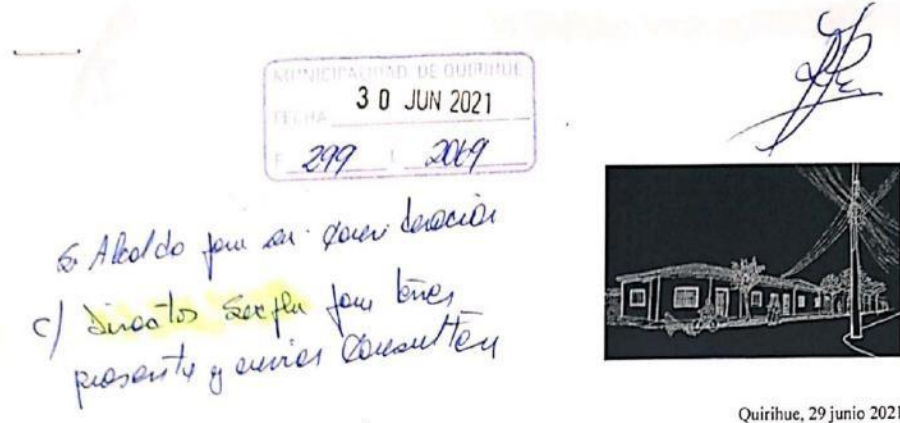 MUNICIPALIDAD DE QUIRIHUE
FECHA 30 JUN 2021
F 299 2069
Sr Alcalde para su consideración
c/ Director Secpla para tener
presente y enviar
Quirihue, 29 junio 2021